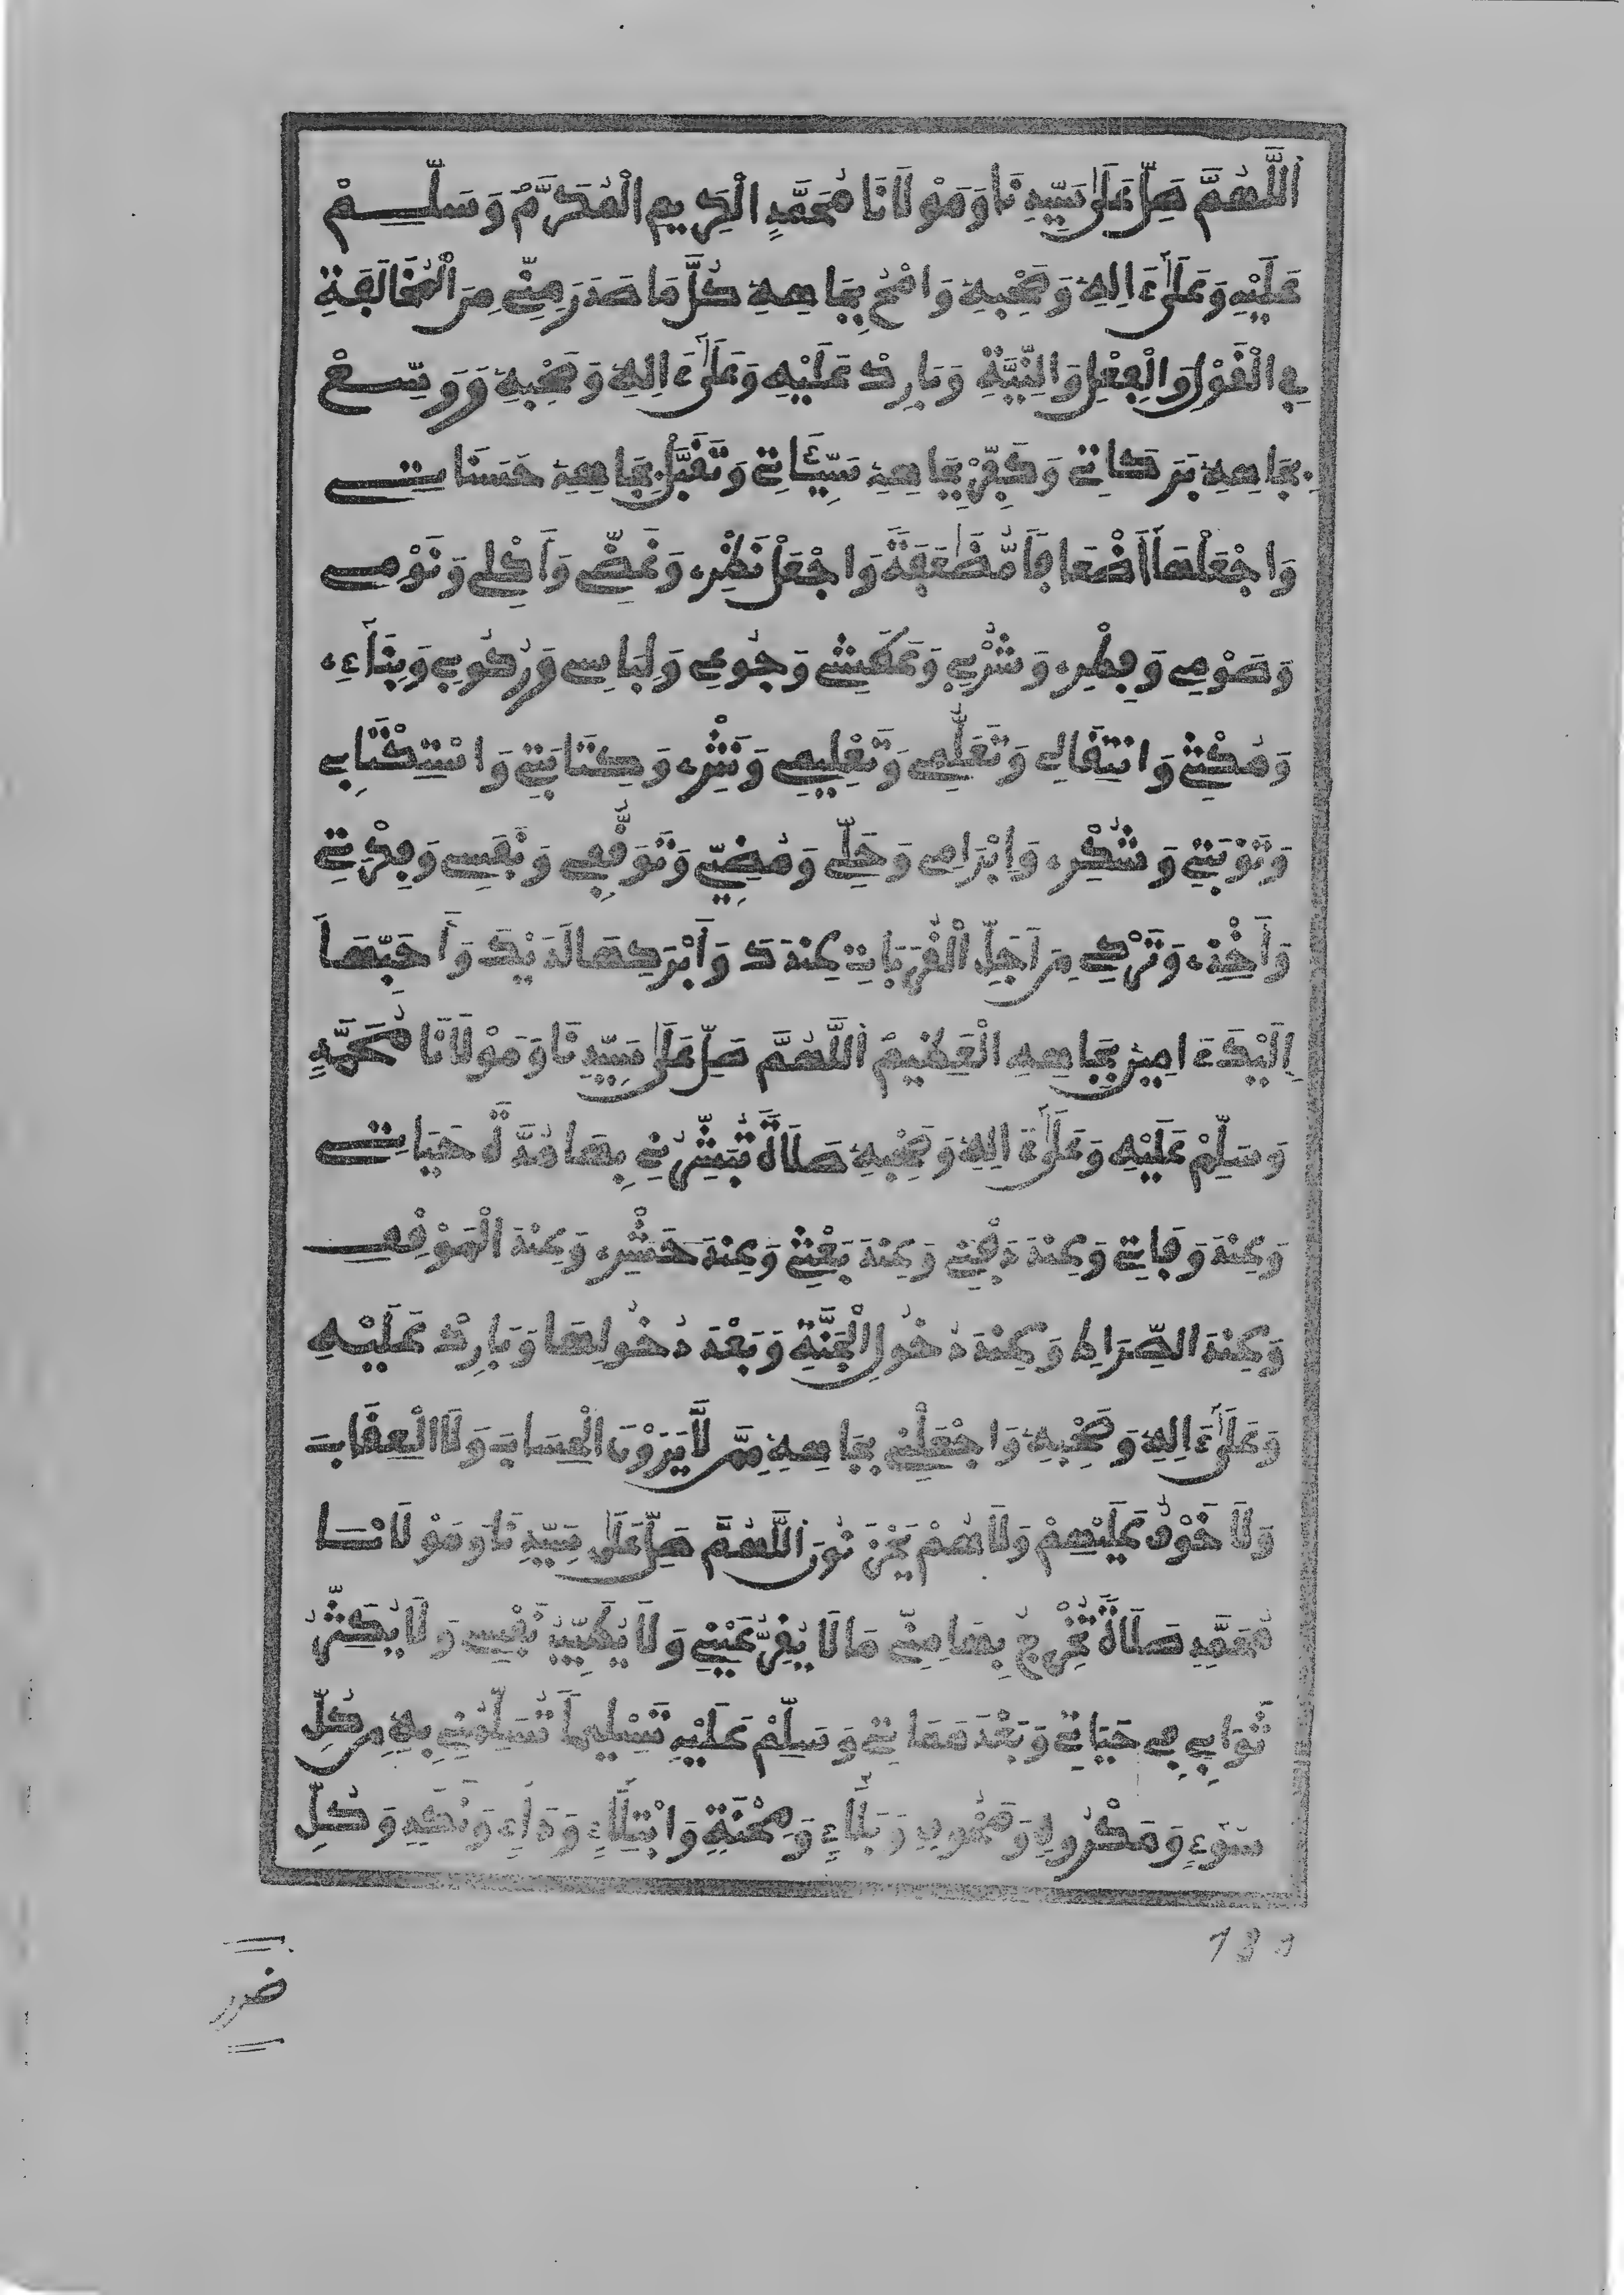 اَللَّهُمَّ صَلِّ عَلَى سَيِّدِنَا وَمَوْلَانَا مُحَمَّدٍ الْكَرِيمِ الْمُكَرَّمِ وَسَلِّمْ
عَلَيْهِ وَعَلَىٰ ءَالِهِ وَصَحْبِهِ وَامْحُ بِجَاهِهِ كُلَّ مَا صَدَرَ مِنِّي مِنَ الْمُخَالَفَةِ
فِي الْقَوْلِ وَالْفِعْلِ وَالنِّيَّةِ وَبَارِكْ عَلَيْهِ وَعَلَىٰ ءَالِهِ وَصَحْبِهِ وَوَسِّعْ
بِجَاهِهِ بَرَكَاتِي وَكَفِّرْ بِجَاهِهِ سَيِّئَاتِي وَتَقَبَّلْ بِجَاهِهِ حَسَنَاتِي
وَاجْعَلْهَا أَضْعَافًا مُّضَٰعَفَةً وَاجْعَلْ نَظَرِي وَغَضِّي وَأَكْلِي وَنَوْمِي
وَصَوْمِي وَفِطْرِي وَشُرْبِي وَعَطَشِي وَجُوعِي وَلِبَاسِي وَرُكُوبِي وَبِنَاءِي
وَمُكْثِي وَانْتِقَالِي وَتَعَلُّمِي وَتَعْلِيمِي وَنَشْرِي وَكِتَابَتِي وَاسْتِكْتَابِي
وَتَوْبَتِي وَشُكْرِي وَإِبْرَامِي وَحَلِّي وَمُضِيِّي وَتَوَقُّفِي وَنَفَسِي وَفِكْرَتِي
وَأَخْذِي وَتَرْكِي مِنَ اجَلِّ الْقُرُبَاتِ عِنْدَكَ وَأَبْرَكِهَا لَدَيْكَ وَأَحَبِّهَا
إِلَيْكَ ءَامِينَ بِجَاهِهِ الْعَظِيمْ اَللَّهُمَّ صَلِّ عَلَى سَيِّدِنَا وَمَوْلَانَا مُحَمَّدٍ
وَسَلِّمْ عَلَيْهِ وَعَلَىٰ ءَالِهِ وَصَحْبِهِ صَلَاةً تُبَشِّرُنِي بِهَا مُدَّةَ حَيَاتِي
وَعِنْدَ وَفَاتِي وَعِنْدَ دَفْنِي وَعِنْدَ بَعْثِي وَعِنْدَ حَشْرِي وَعِنْدَ الْمَوْقِفِ
وَعِنْدَ الصِّرَاطِ وَعِنْدَ دُخُولِ الْجَنَّةِ وَبَعْدَ دُخُولِهَا وَبَارِكْ عَلَيْهِ
وَعَلَىٰ ءَالِهِ وَصَحْبِهِ وَاجْعَلْنِي بِجَاهِهِ مِمَّن لَّا يَرَوْنَ الْحِسَابَ وَلَا الْعِقَابَ
وَلَا خَوْفٌ عَلَيْهِمْ وَلَا هُمْ يَحْزَنُونَ اَللَّهُمَّ صَلِّ عَلَى سَيِّدِنَا وَمَوْلَانَا
مُحَمَّدٍ صَلَاةً تُخْرِجُ بِهَا مِنِّي مَا لَا يُقِرُّ عَيْنِي وَلَا يُطَيِّبُ نَفْسِي وَلَا يُكَثِّرُ
ثَوَابِي فِي حَيَاتِي وَبَعْدَ مَمَاتِي وَسَلِّمْ عَلَيْهِ تَسْلِيمًا تُسَلِّمُنِي بِهِ مِن كُلِّ
سُوءٍ وَمَكْرُوهٍ وَ وَبَلَاءٍ وَمِحْنَةٍ وَابْتِلَاءٍ وَدَاءٍ وَنَكَدٍ وَكُلِّ
ضرر